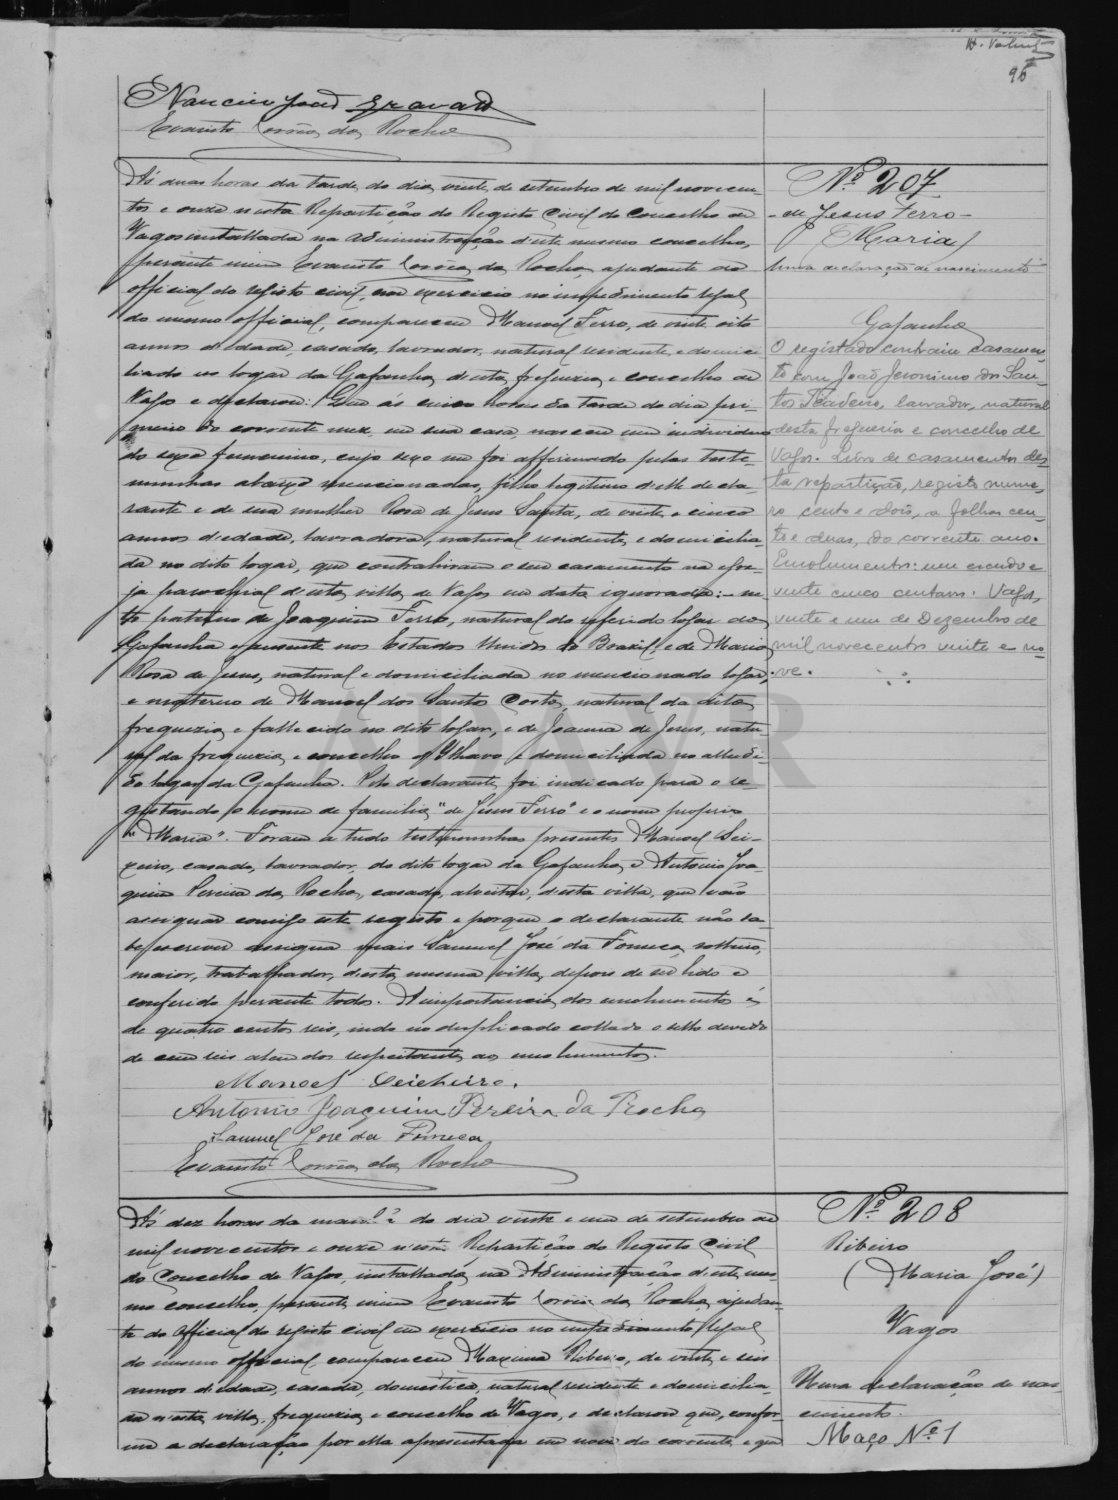 96
Evaristo Corrêa da Rocha
Ás duas horas da tarde do dia vinte de setembro de mil novecen-
tos e onze n'esta Repartição do Registo Civil do Concelho de
Vagos installada na Administração d'este mesmo concelho,
perante mim Evaristo Corrêa da Rocha ajudante do
official do registo civil, em exercicio no impedimento legal
do mesmo official, compareceu Manoel Ferro, de vinte oito
annos d'edade, casado, lavrador, natural residente e domici-
liado no logar da Gafanha, d'esta freguezia e concelho de
Vagos e declarou: Que ás cinco horas da tarde do dia pri-
meiro do corrente mez, em sua casa, nasceu um individuo
do sexo femenino, cujo sexo me foi affirmado pelas teste-
munhas abaixo mencionadas, filho legitimo d'elle decla-
rante e de sua mulher Rosa de Jesus Santa, de vinte e cinco
annos d'edade, lavradora, natural residente e domicilia-
da no dito logar, que contrahiram o seu casamento na egre-
ja parochial d'esta villa de Vagos em data ignorada: ne-
to paterno de Joaquim Ferro, natural do referido logar da
Gafanha e ausente nos Estados Unidos do Brazil, e de Maria
Rosa de Jesus, natural e domiciliada no mencionado logar,
e materno de Manoel dos Santos Costa, natural da dita
freguezia e fallecido no dito logar, e de Joanna de Jesus, natu-
ral da freguezia e concelho d'Ilhavo e domiciliada no alludi-
do logar da Gafanha. Pelo declarante foi indicado para o re-
gistando o nome de familia "de Jesus Ferro" e o nome proprio
"Maria". Foram a tudo testemunhas presentes Manoel Sei-
xeiro, casado, lavrador, do dito logar da Gafanha e Antonio Joa-
quim Pereira da Rocha, casado, alveitar, d'esta villa, que vão
assignar comigo este registo e porque o declarante não sa-
be escrever assigna mais Samuel José da Fonseca, solteiro,
maior, trabalhador, d'esta mesma villa, depois de ser lido e
conferido perante todos. A importancia dos emolumentos é
de quatro centos reis, indo no duplicado collado o sello devido
de cem reis alem dos respeitantes aos emolumentos.
Manoel
Antonio Joaquim Pereira da Rocha
Samuel José da Fonseca
Evaristo Corrêa da Rocha
Nº 207
de Jesus Ferro
(Maria)
Uma declaração de nascimento
Gafanha
O registado contraiu casamen-
to com João Jeronimo dos San-
tos, lavrador, natural
desta freguesia e concelho de
Vagos. Livro de casamentos des-
ta repartição, registo nume-
ro cento e dois, a folhas cen-
to e duas, do corrente ano.
Emolumentos: um escudo e
vinte cinco centavos. Vagos,
vinte e um de Dezembro de
mil novecentos vinte e no-
ve.
Ás dez horas da manhã do dia vinte e um de setembro de
mil novecentos e onze n'esta Repartição do Registo Civil
do Concelho de Vagos, installada na Administração d'este mes-
mo concelho, perante mim Evaristo Corrêa da Rocha, ajudan-
te do official do registo civil em exercicio no impedimento legal
do mesmo official, compareceu Maxima Ribeiro, de vinte e seis
annos d'edade, casada, domestica, natural residente e domicilia-
da n'esta villa, freguezia e concelho de Vagos, e declarou que, confor-
me a declaração por ella apresentada em nove do corrente e que
Nº 208
Ribeiro
(Maria José)
Vagos
Uma declaração de nas-
cimento.
Maço Nº 1